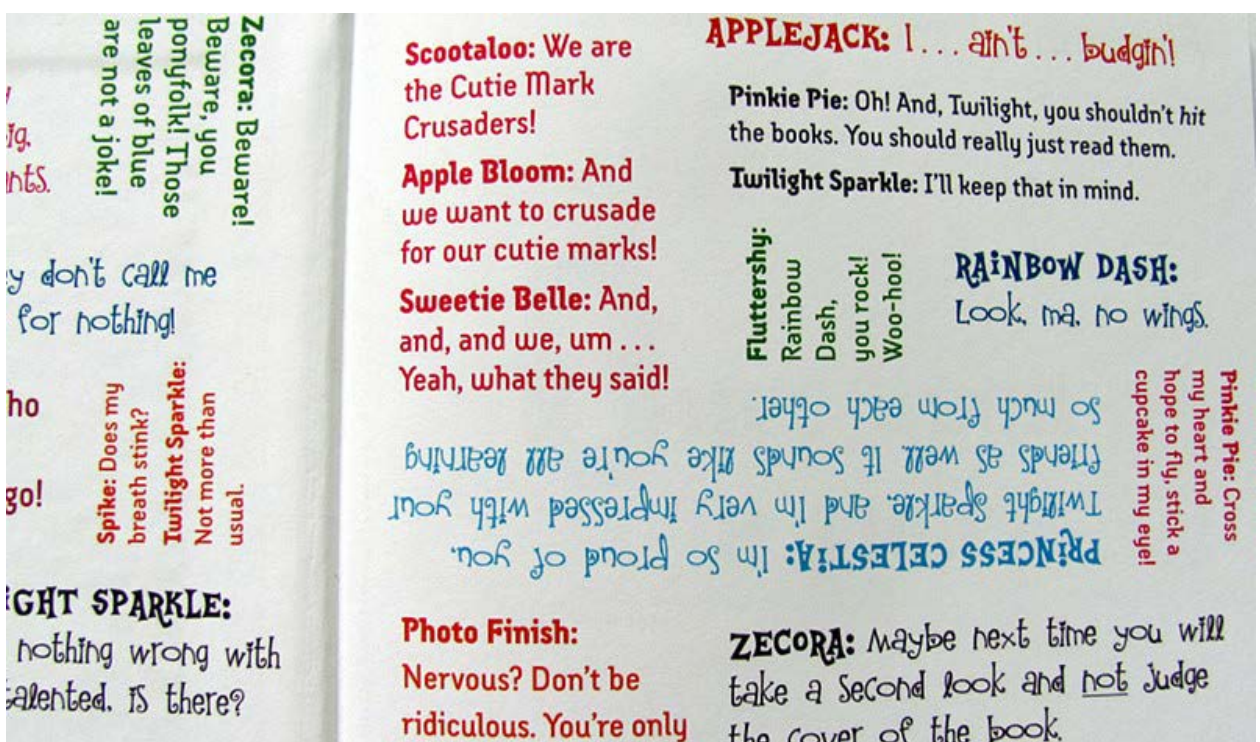 Zecora: Beware!
Beware, you
ponyfolk! Those
leaves of blue
are not a joke!
don't call me
for nothing!
Spike: Does my
breath stink?
Twilight Sparkle:
Not more than
usual.
go!
SPARKLE:
nothing wrong with
talented. is there?
Scootaloo: We are
the Cutie Mark
Crusaders!
Apple Bloom: And
we want to crusade
for our cutie marks!
Sweetie Belle: And,
and, and we, um . . .
Yeah, what they said!
APPLEJACK: I . . . ain't . . . budgin'!
Pinkie Pie: Oh! And, Twilight, you shouldn't hit
the books. You should really just read them.
Twilight Sparkle: I'll keep that in mind.
Fluttershy:
Rainbow
Dash,
you rock!
Woo-hoo!
RAiNBOW DASH:
Look, ma. no wings.
Pinkie Pie: Cross
my heart and
hope to fly, stick a
cupcake in my eye!
PRiNCESS CELESTiA: I'm so proud of you,
Twilight Sparkle, and I'm very impressed with your
friends as well It sounds like you're all learning
so much from each other.
Photo Finish:
Nervous? Don't be
ridiculous. You're only
ZECORA: Maybe next time you will
take a second look and not judge
the cover of the book.